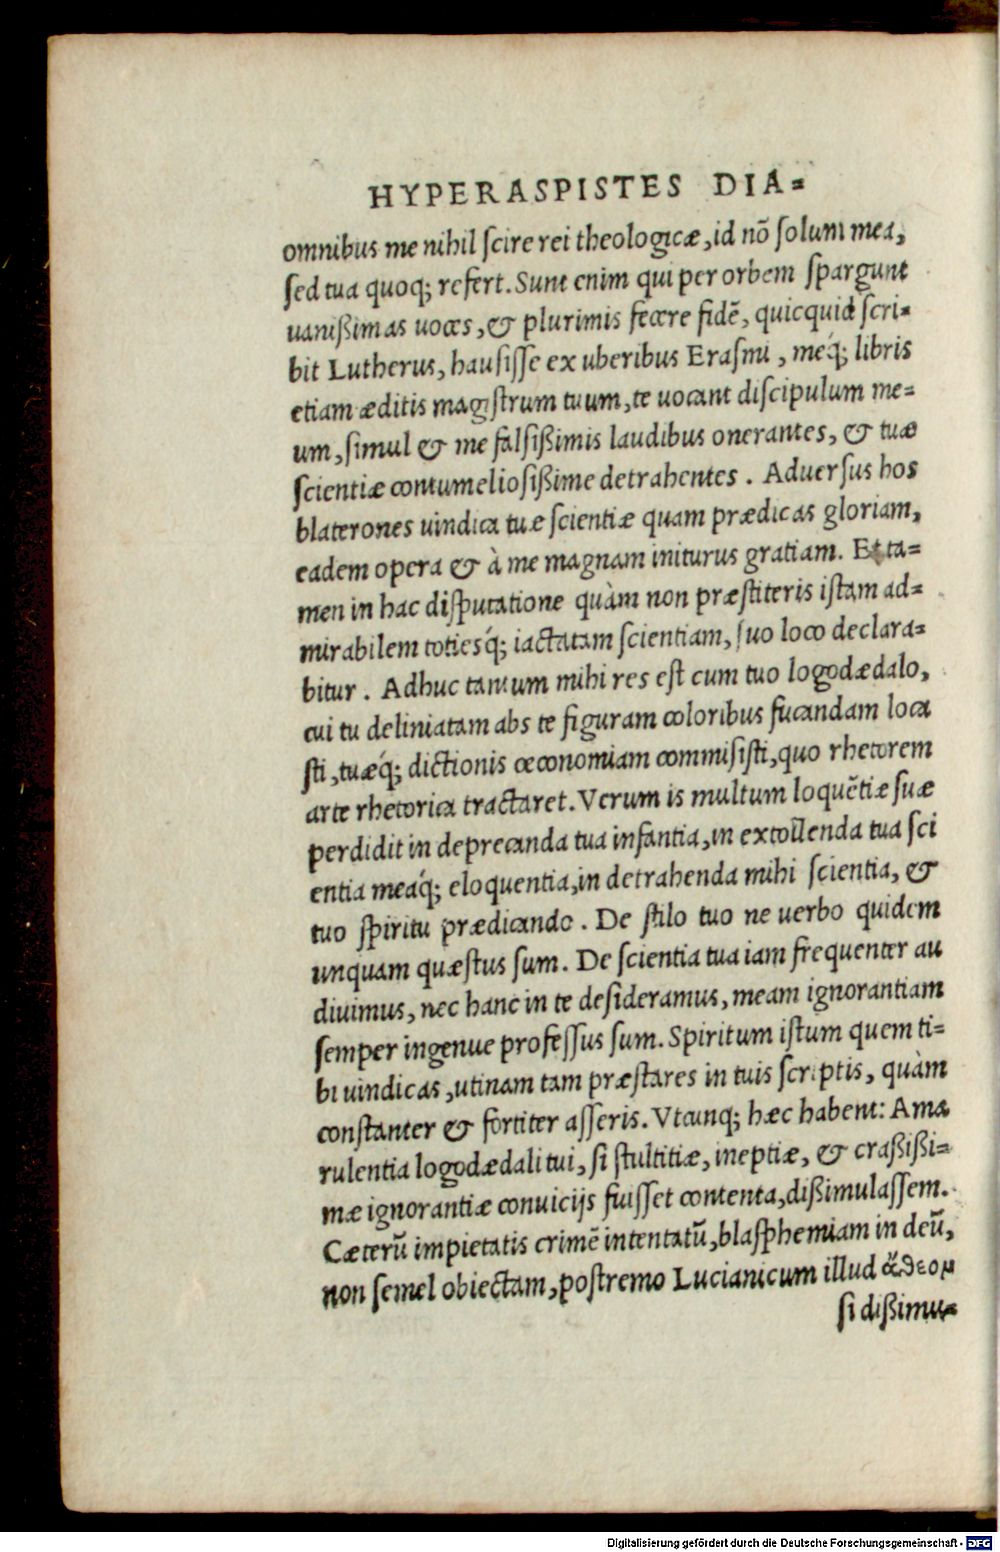 HYPERASPISTES DIA=
omnibus me nihil scire rei theologicæ, id nõ solum mea,
sed tua quoq; refert. Sunt enim qui per orbem spargunt
uanißimas uoces, & plurimis fecere fidẽ, quicquid scri=
bit Lutherus, hausisse ex uberibus Erasmi, meq́; libris
etiam æditis magistrum tuum, te uocant discipulum me=
um, simul & me falsißimis laudibus onerantes, & tuæ
scientiæ contumeliosißime detrahentes. Aduersus hos
blaterones uindica tuæ scientiæ quam prædicas gloriam,
eadem opera & à me magnam initurus gratiam. Et ta=
men in hac disputatione quàm non præstiteris istam ad=
mirabilem totiesq́; iactatam scientiam, suo loco declara=
bitur. Adhuc tantum mihi res est cum tuo logodædalo,
cui tu deliniatam abs te figuram coloribus fucandam loca
sti, tuæq́; dictionis œconomiam commisisti, quo rhetorem
arte rhetorica tractaret. Verum is multum loquẽtiæ suæ
perdidit in deprecanda tua infantia, in extollenda tua sci
entia meaq́; eloquentia, in detrahenda mihi scientia, &
tuo spiritu prædicando. De stilo tuo ne uerbo quidem
unquam quæstus sum. De scientia tua iam frequenter au
diuimus, nec hanc in te desideramus, meam ignorantiam
semper ingenue professus sum. Spiritum istum quem ti=
bi uindicas, utinam tam præstares in tuis scriptis, quàm
constanter & fortiter asseris. Vtcunq; hæc habent: Ama
rulentia logodædali tui, si stultitiæ, ineptiæ, & craßißi=
mæ ignorantiæ conuicijs fuisset contenta, dißimulassem.
Cæterũ impietatis crimẽ intentatũ, blasphemiam in deũ,
non semel obiectam, postremo Lucianicum illud ἄθεον
si dißimu=
Digitalisierung gefördert durch die Deutsche Forschungsgemeinschaft - DFG